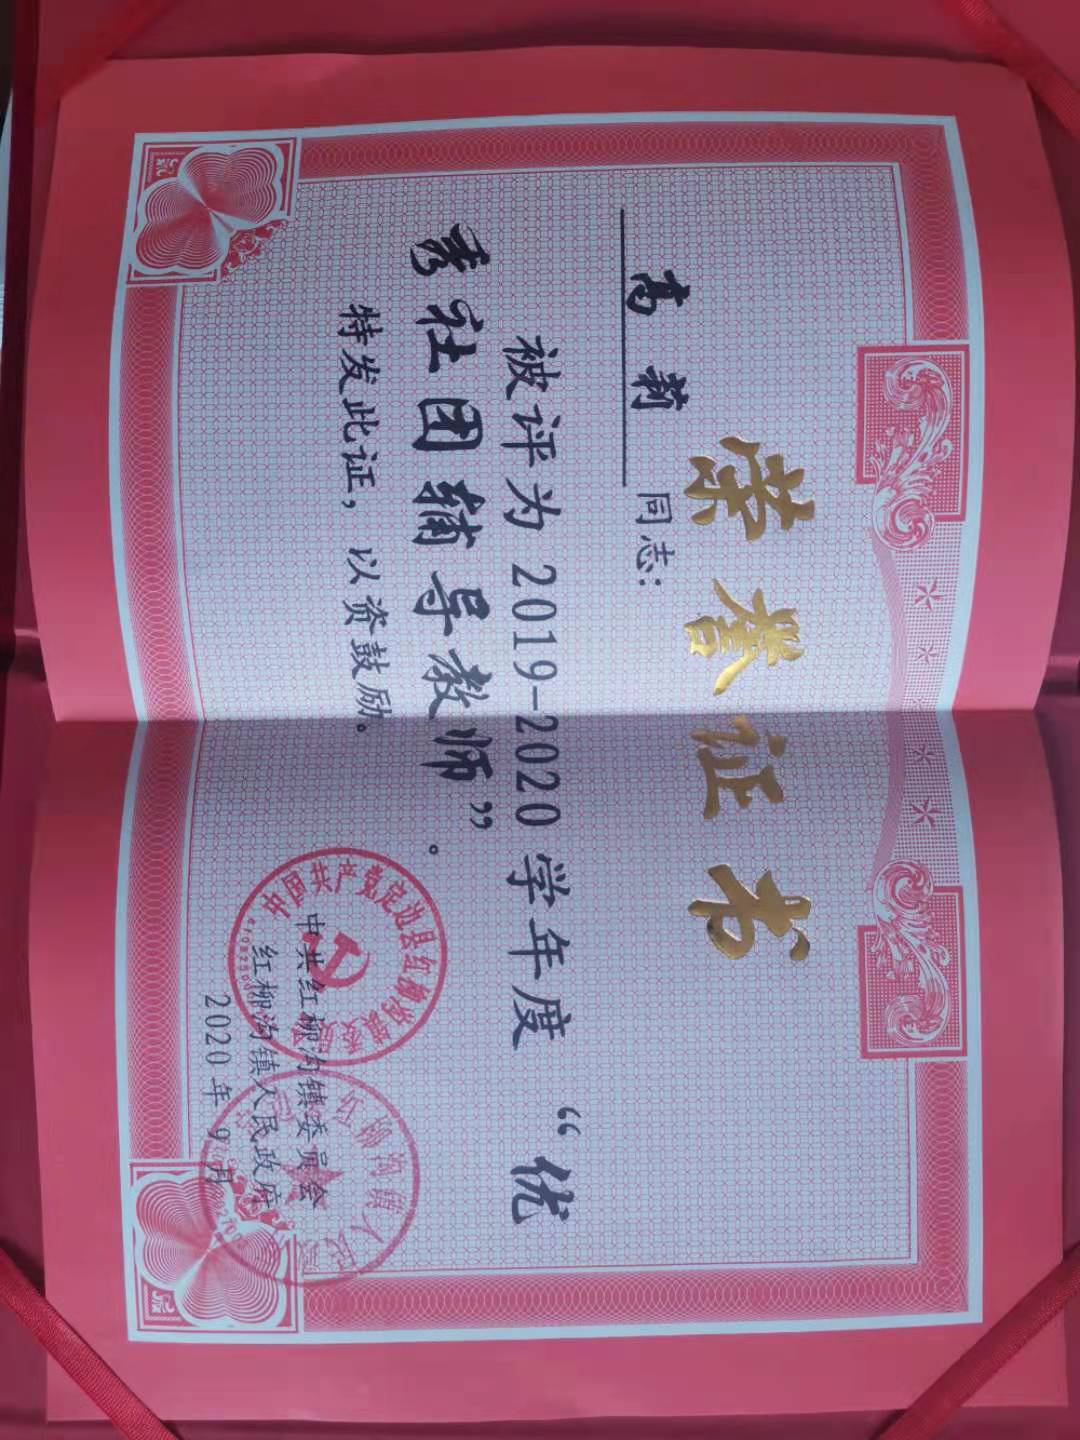 荣誉证书
高莉 同志:
被评为 2019-2020 学年度 “优
秀社团辅导教师”。
特发此证，以资鼓励。
中共红柳沟镇委员会
红柳沟镇人民政府
2020年9月
中国共产党定边县红柳沟镇委员会